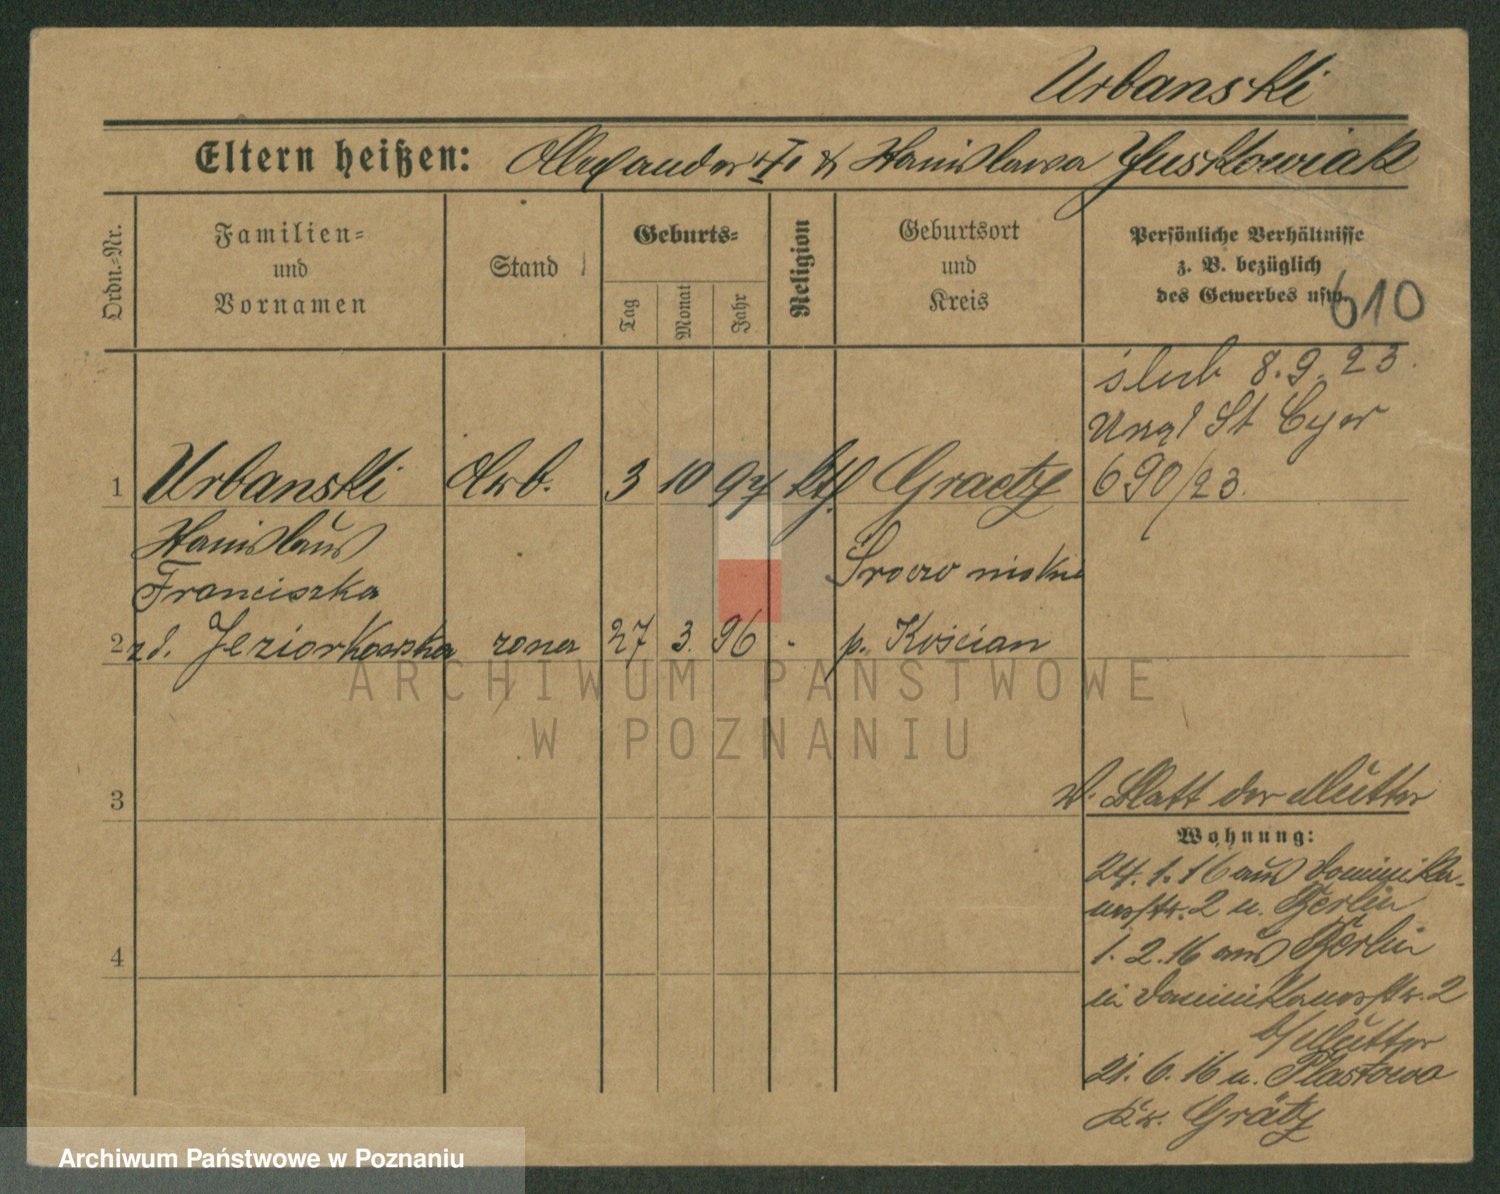 Urbanski
Eltern heißen: Alexander & Stanislawa Juskowiak
Ordn.-Nr.
Familien-
und
Vornamen
Stand
Geburts-
Tag
Monat
Jahr
Religion
Geburtsort
und
Kreis
Persönliche Verhältnisse
z. B. bezüglich
des Gewerbes usw.
610
ślub 8.9.23.
St Cyw
690/23.
1 Urbanski Arb. 3 10 94 kth Graetz
Stanislaus
Franciszka
2 zd. Jeziorkowska żona 27 3. 96 - p. Kościan
3
4
w. Blatt der Mutter
Wohnung:
24.1.16 aus Dominika-
nerstr. 2 n. Berlin
1.2.16 aus Berlin
in Dominikanerstr. 2
b/ Mutter
21.6.16 n. Plastowo
Kr. Grätz
ARCHIWUM PAŃSTWOWE
W POZNANIU
Archiwum Państwowe w Poznaniu